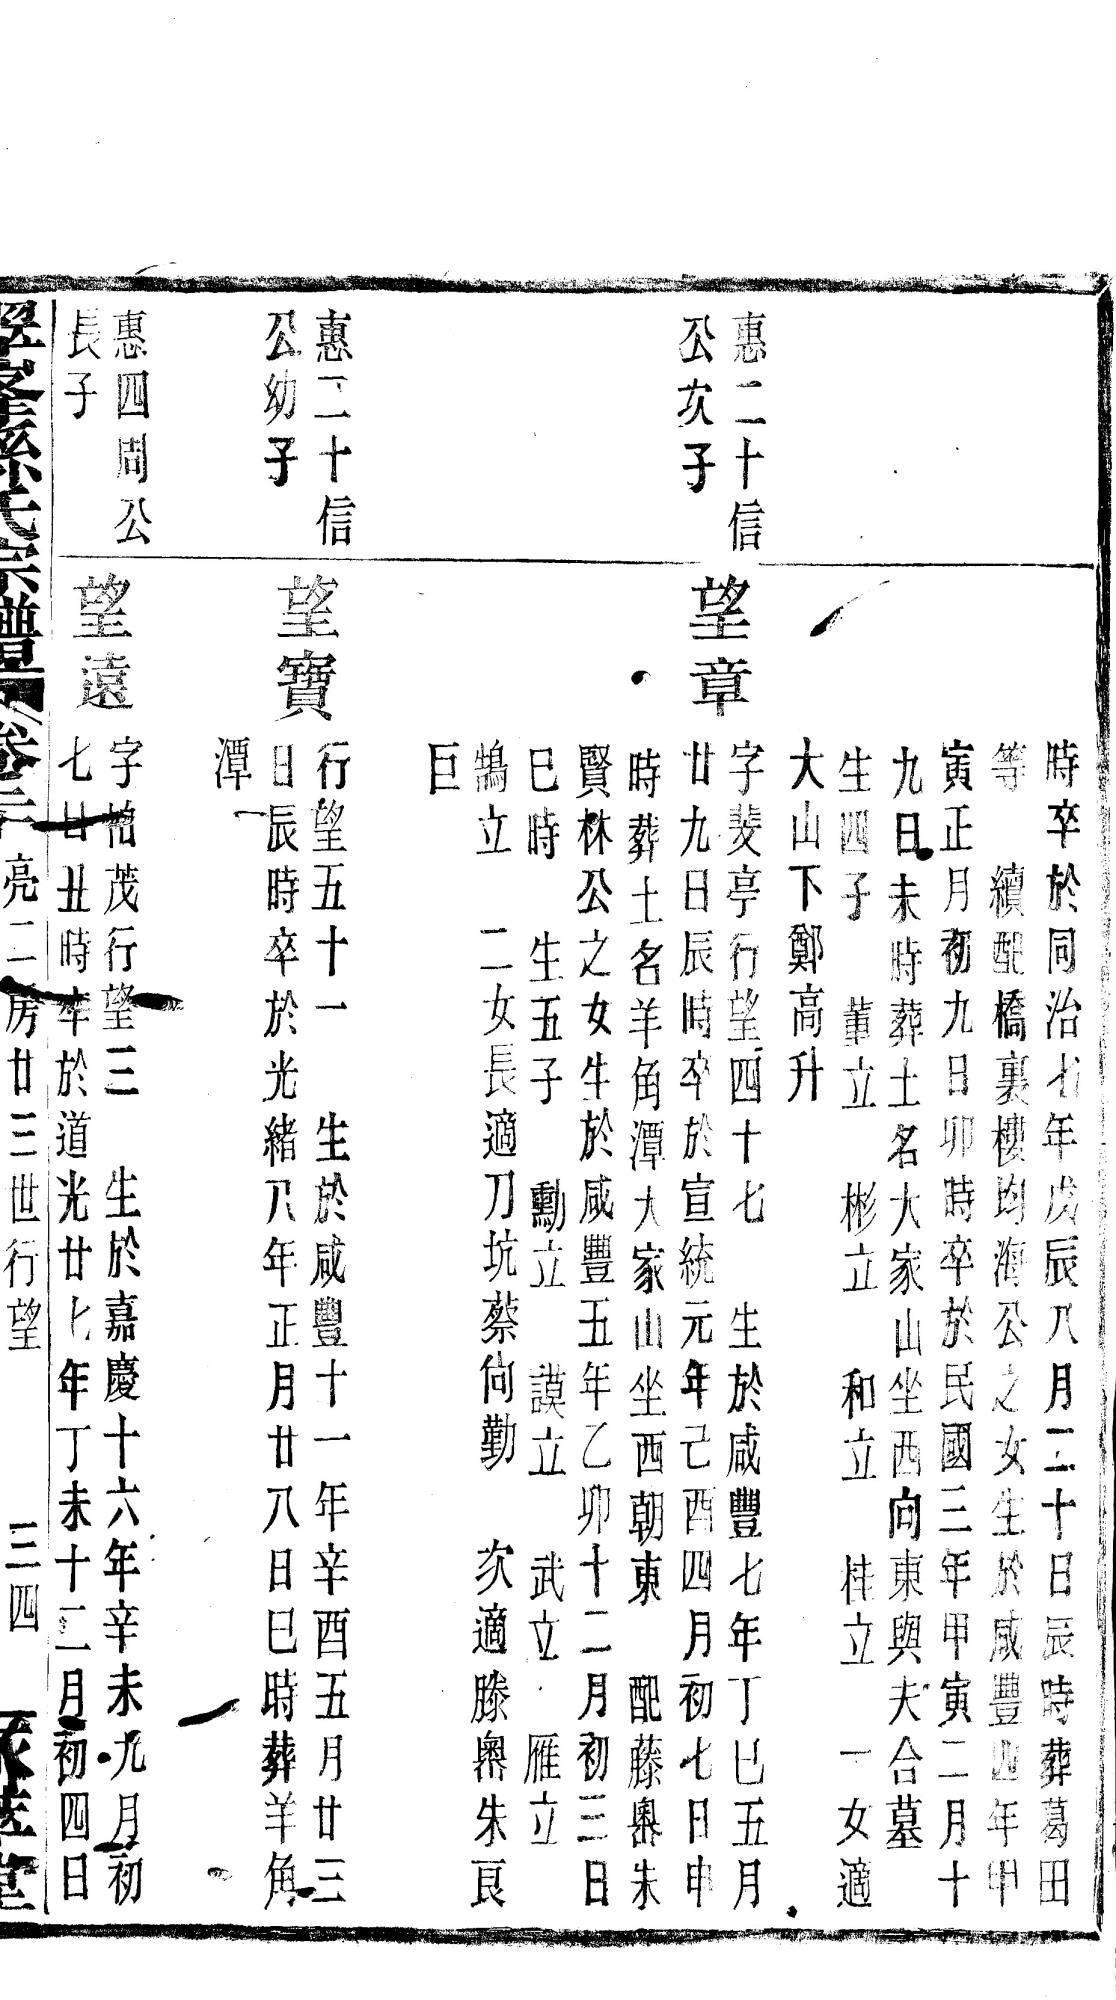 時卒於同治七年戊辰八月二十日辰時葬葛田
等　續配橋裏樓均海公之女生於咸豐四年甲
寅正月初九日卯時卒於民國三年甲寅二月十
九日未時葬土名大家山坐西向東與夫合墓
生四子　董立　彬立　和立　桂立　一女適
大山下鄭高升
惠二十信
公次子
望章
字斐亭行望四十七　生於咸豐七年丁巳五月
廿九日辰時卒於宣統元年己酉四月初七日申
時葬土名羊角潭大家山坐西朝東　配藤㠗朱
賢林公之女生於咸豐五年乙卯十二月初三日
巳時　生五子　勳立　謨立　武立　雁立
鵠立　二女長適刀坑蔡尙勤　次適滕㠗朱良
巨
惠二十信
公幼子
望寶
行望五十一　生於咸豐十一年辛酉五月廿三
日辰時卒於光緒八年正月廿八日巳時葬羊角
潭
惠四周公
長子
望遠
字柏茂行望三　生於嘉慶十六年辛未九月初
七廿丑時卒於道光廿七年丁未十二月初四日
孫氏宗譜　亮二房廿三世行望　三四